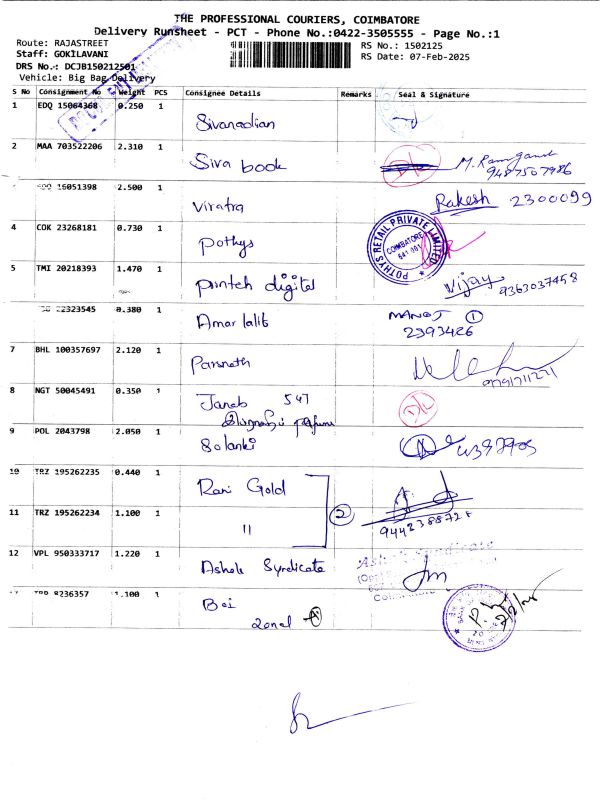 THE PROFESSIONAL COURIERS, COIMBATORE
Delivery Runsheet - PCT - Phone No.:0422-3505555 - Page No.:1
Route: RAJASTREET
Staff: GOKILAVANI
DRS No.: DCJB150212501
Vehicle: Big Bag Delivery
RS No.: 1502125
RS Date: 07-Feb-2025
S No Consignment No Weight PCS Consignee Details Remarks Seal & Signature
1 EDQ 15064368 0.250 1 Sivanadian
2 MAA 703522206 2.310 1 Siva book D/C M. Ramganesh
9487507986
16051398 2.500 1 Viratra Rakesh 2300099
4 COK 23268181 0.730 1 Pothys
POTHYS RETAIL PRIVATE LIMITED
COIMBATORE
641 001
5 TMI 20218393 1.470 1 printeh digital Vijay 9363037458
22323545 0.380 1 Amar lalit MANOJ 1
2393426
7 BHL 100357697 2.120 1 Parsnath
8 NGT 50045491 0.350 1 Janab 547 D/C
9 POL 2043798 2.050 1 Solanki
10 TRZ 195262235 0.440 1 Rani Gold 2
11 TRZ 195262234 1.100 1 "
12 VPL 950333717 1.220 1 Ashok Syndicate
Ashok Syndicate
8236357 1.100 1 Boi
zonal A